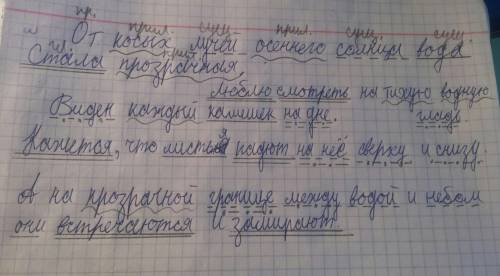 пр. прил. сущ. прил. сущ. сущ.
От косых лучей осеннего солнца вода
гл. прил.
Стала прозрачныя,
Люблю смотреть на тихую водную
Виден каждый камишек на дне. гладь.
Кажется, что листья падют на неё сверху и снизу.
А на прозрачной границе между водой и небом
они встречаются и замирают.